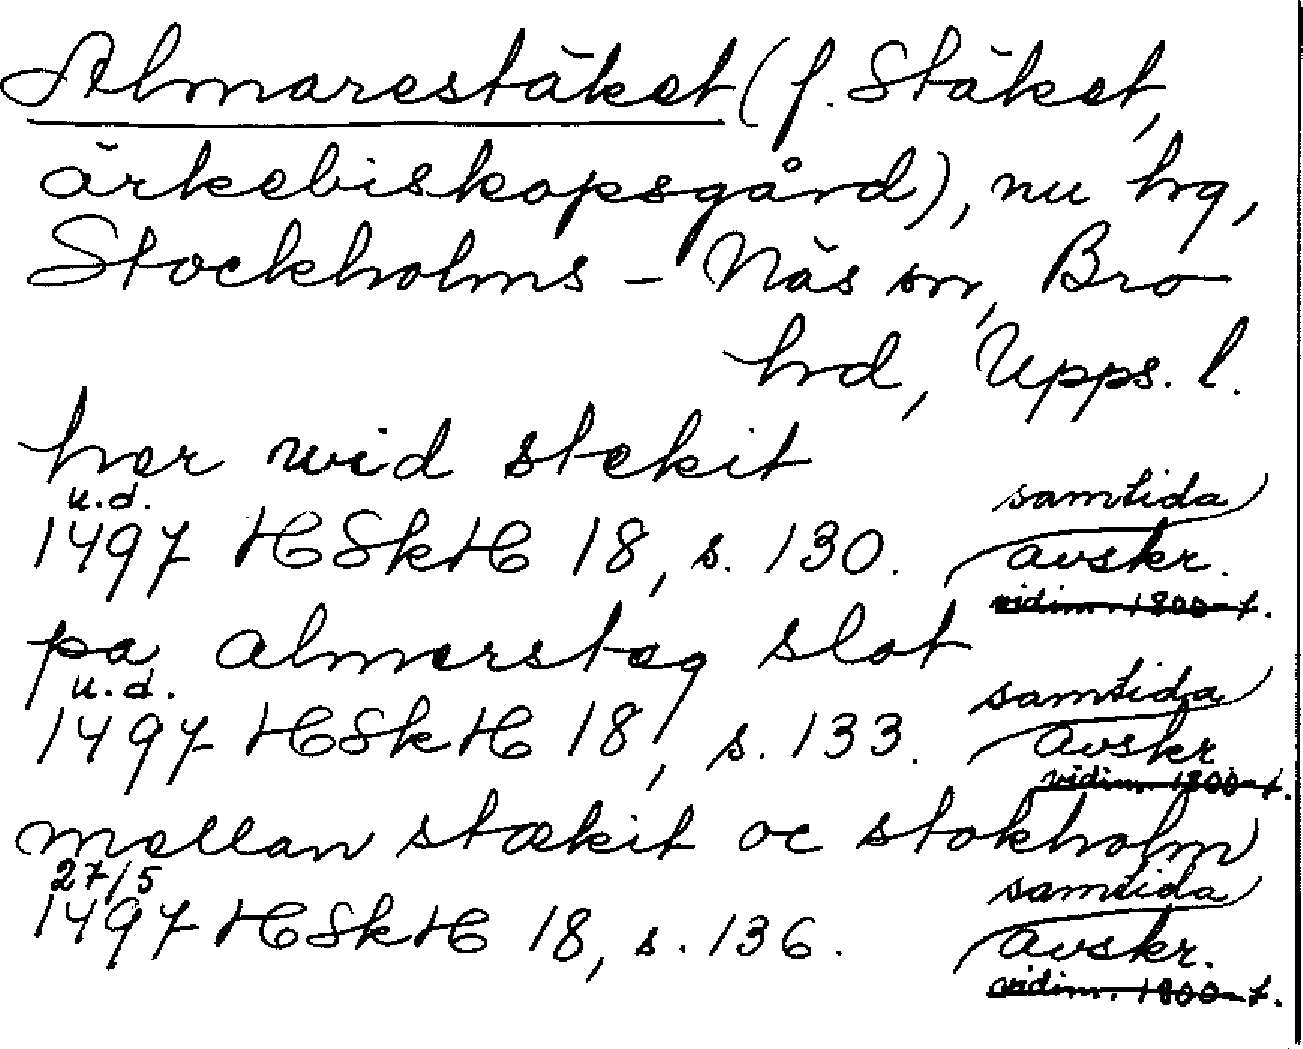 Almarestäket (f. Stäket,
ärkebiskopsgård), nu hrg,
Stockholms-Näs sn, Bro
hrd, Upps. l.
hær wid stekit
u.d. samtida
1497 HSkH 18, s. 130. avskr.
vidim. 1800-t.
pa almerstæg slot
u.d. samtida
1497 HSkH 18, s. 133. avskr
vidim. 1800-t.
mellan stækit oc stokholm
27/5 samtida
1497 HSkH 18, s. 136. avskr.
vidim. 1800-t.